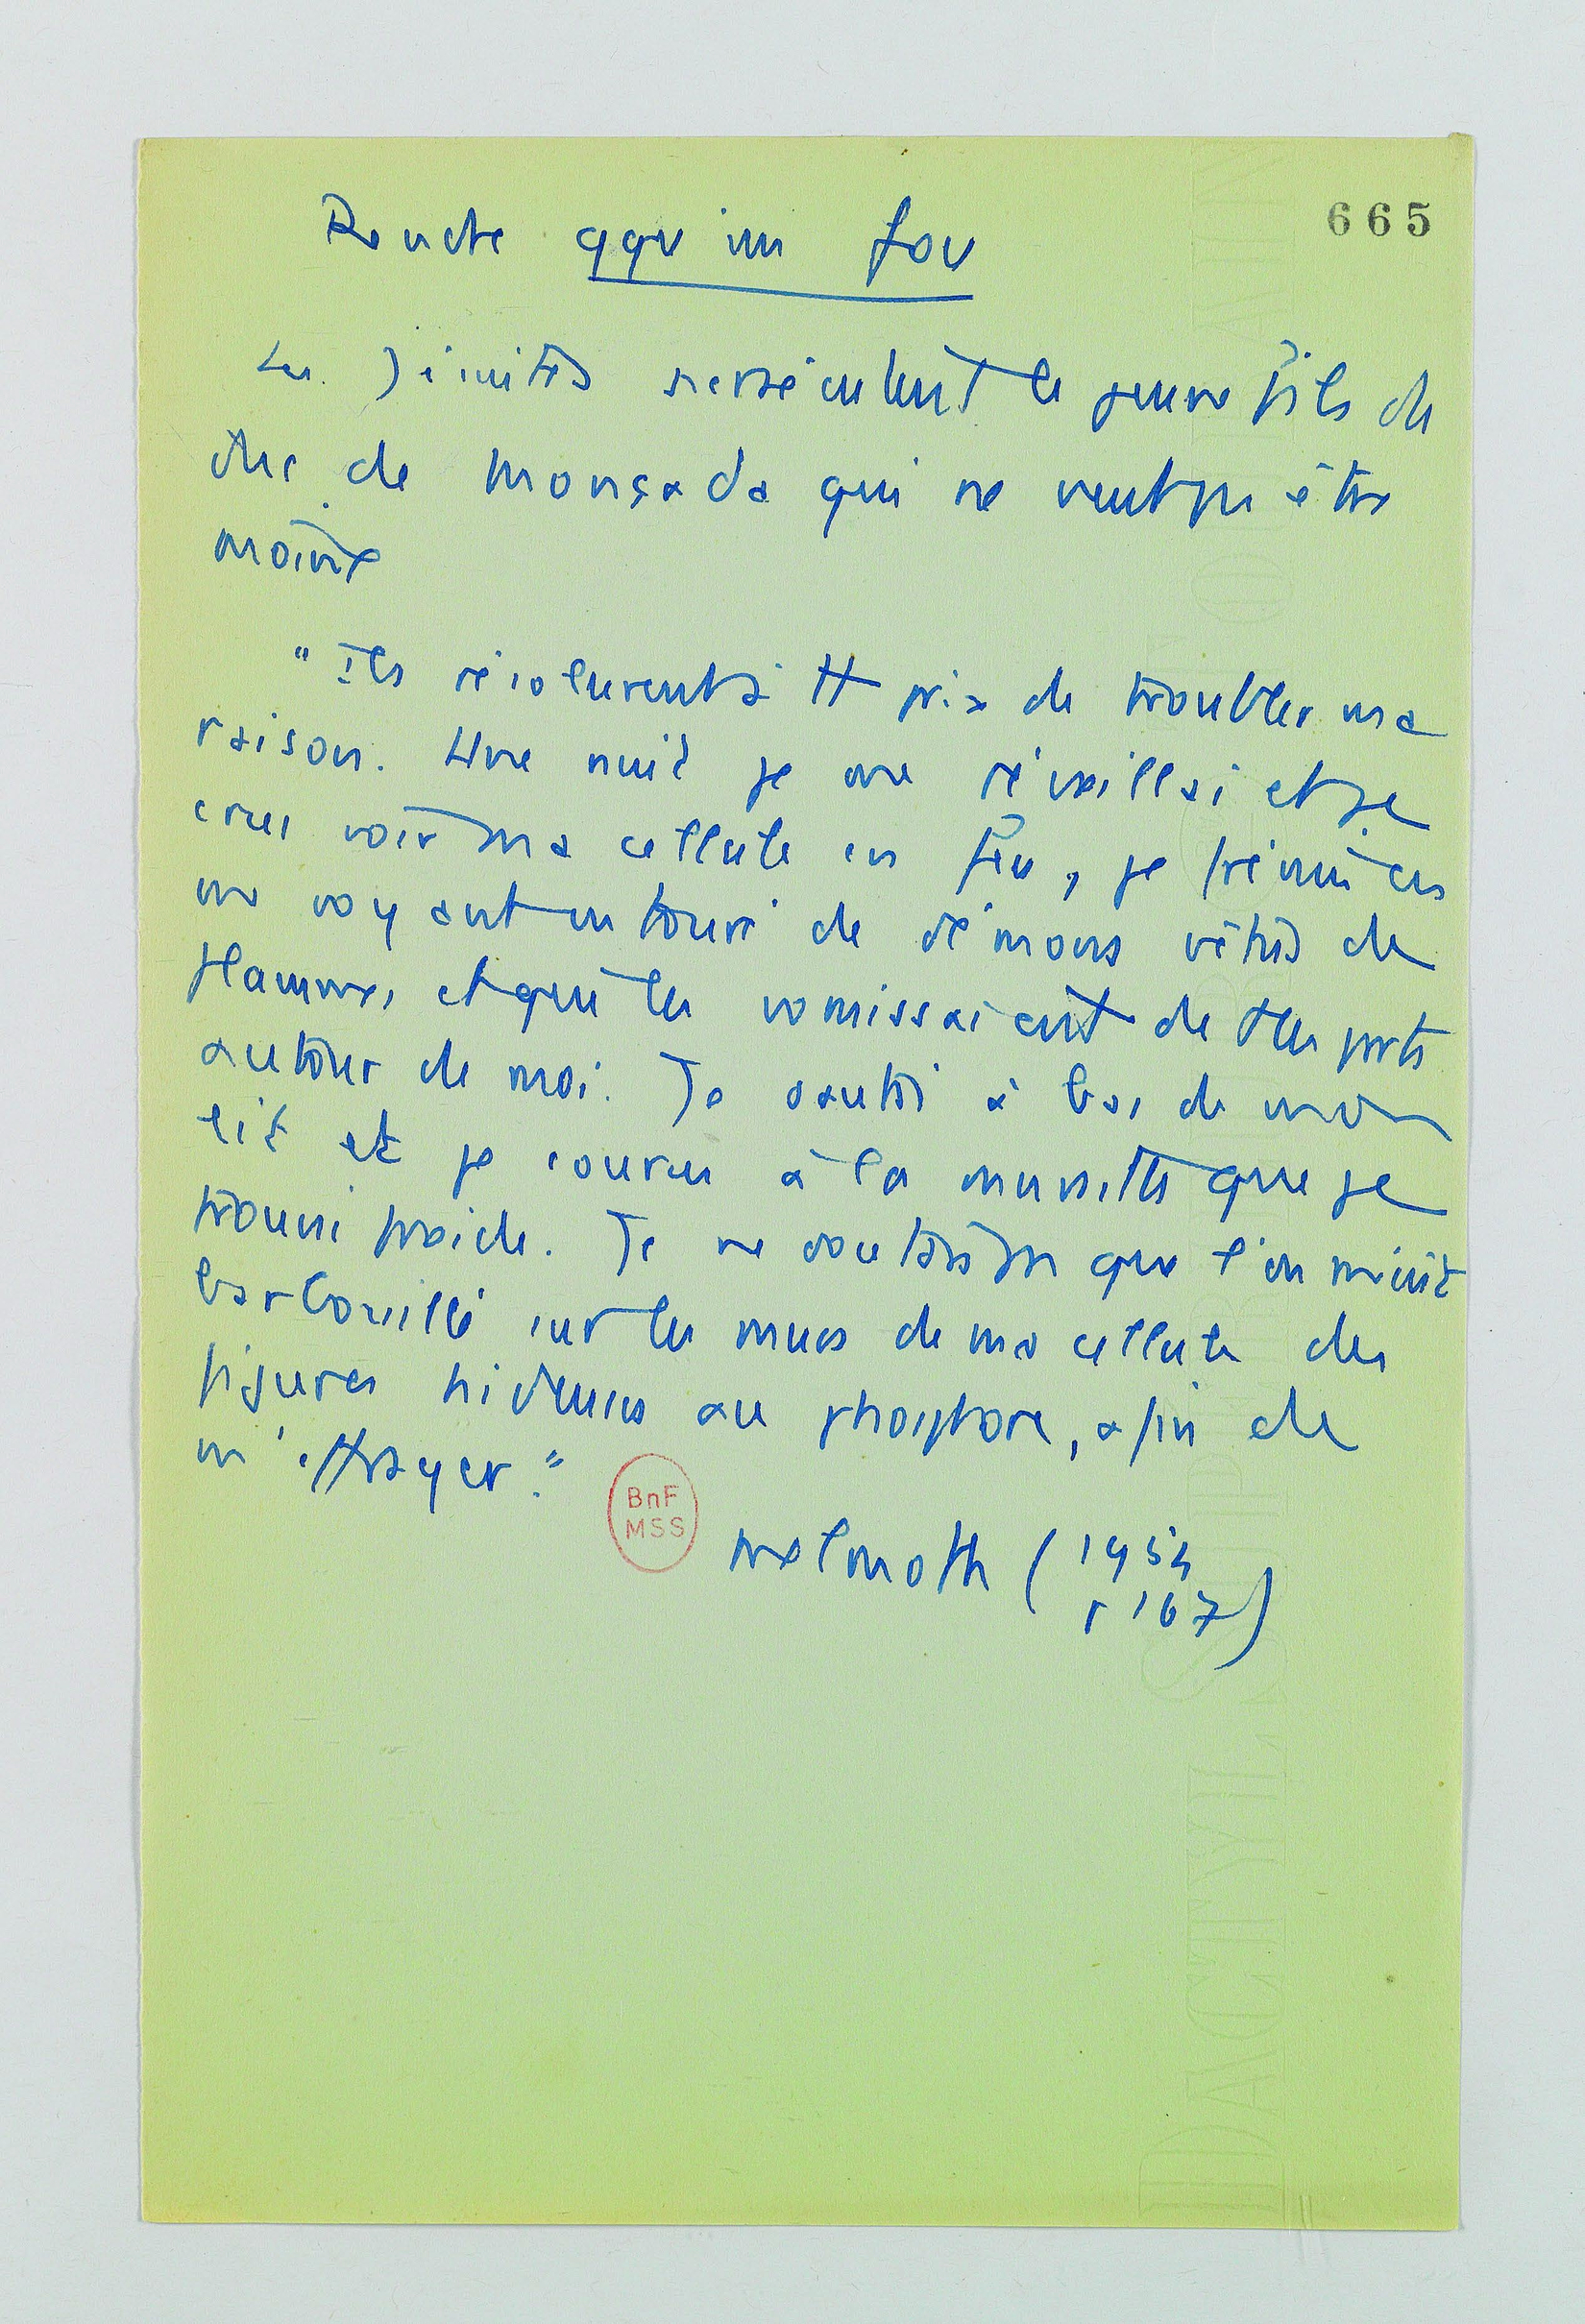 Rendre qqu'un fou
665
Les Jésuites persécutent le jeune fils du
duc de Monçada qui ne veut pas être
moine
"Ils résolurent à tt prix de troubler ma
raison. Une nuit je me réveillai et je
crus voir ma cellule en feu, je frémis en
me voyant entouré de démons vêtus de
flammes et qui les vomissaient de ttes parts
autour de moi. Je sautai à bas de mon
lit et je courus à la muraille que je
trouvai froide. Je ne doutais pas que l'on m'eût
barbouillé sur les murs de ma cellule des
figures hideuses au phosphore, afin de
m'effrayer."
BnF
MSS
Melmoth (1954
p 167)